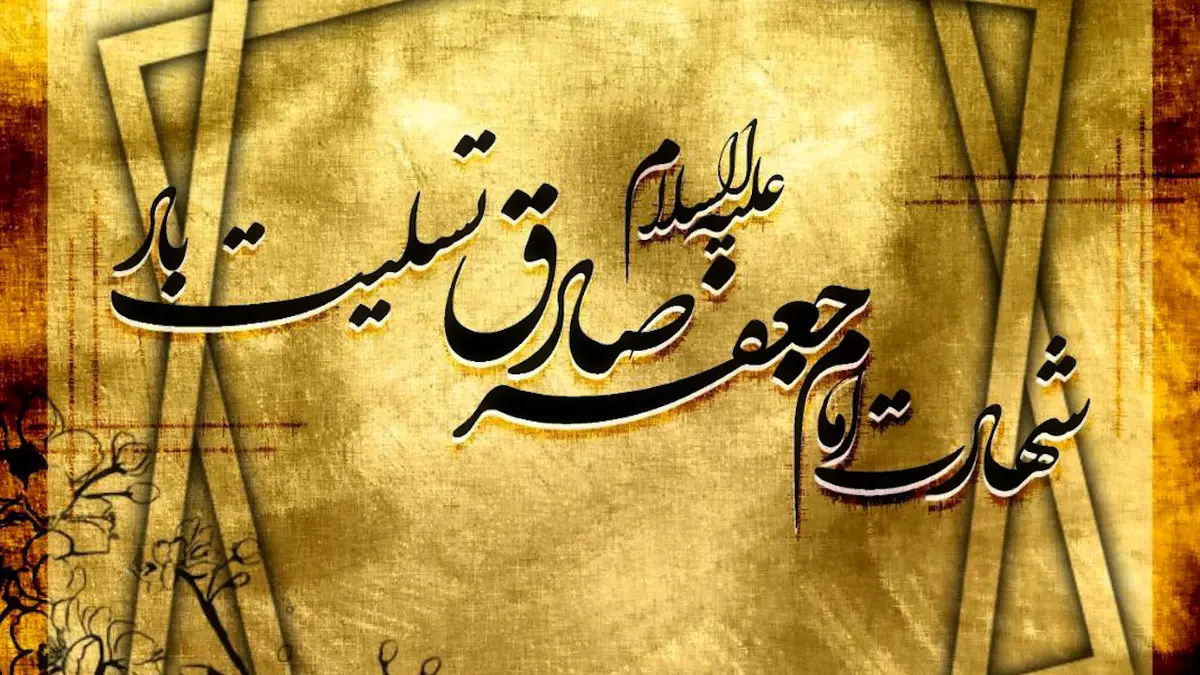 شهادت امام جعفر صادق علیه السلام تسلیت باد